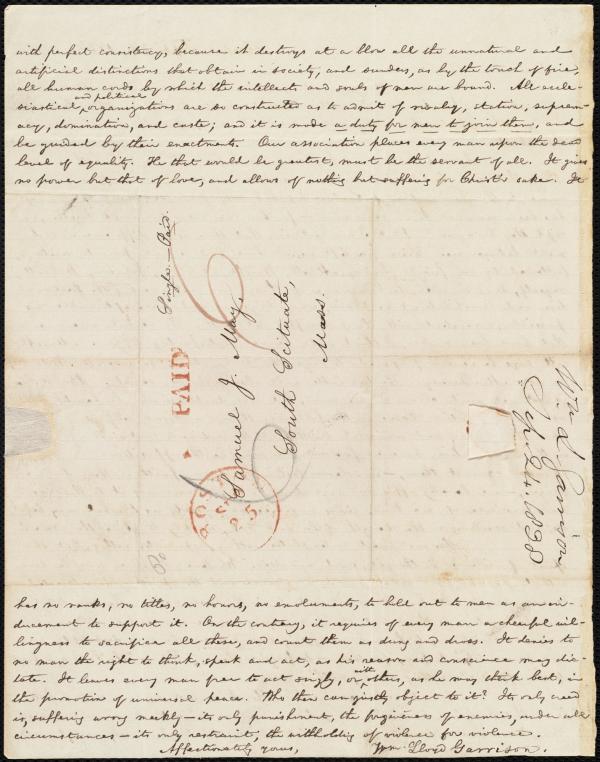 with perfect consistency, because it destroys at a blow all the unnatural and
artificial distinctions that obtain in society, and sunders, as by the touch of fire,
all human cords by which the intellects and souls of men are bound. All eccle-
siastical and political organizations are so constructed as to admit of rivalry, station, suprem-
acy, domination, and caste; and it is made a duty for men to join them, and
be guided by their enactments. Our association places every man upon the dead
level of equality. He that would be greatest, must be the servant of all. It gives
no power but that of love, and allows of nothing but suffering for Christ's sake. It
Single.—Paid.
PAID
6
Samuel J. May,
South Scituate,
Mass.
BOST
SEP
25
Wm. L. Garrison
Sep. 24. 1838
has no ranks, no titles, no honors, no emoluments, to held out to men as an in-
ducement to support it. On the contrary, it requires of every man a cheerful wil-
lingness to sacrifice all these, and count them as dung and dross. It denies to
no man the right to think, speak and act, as his reason and conscience may dic-
tate. It leaves every man free to act singly, or with others, as he may think best, in
the promotion of universal peace. Who then can justly object to it? Its only creed
is, suffering wrong meekly—its only punishment, the forgiveness of enemies, under all
circumstances—its only restraint, the withholding of violence for violence.
Affectionately yours,
Wm. Lloyd Garrison.